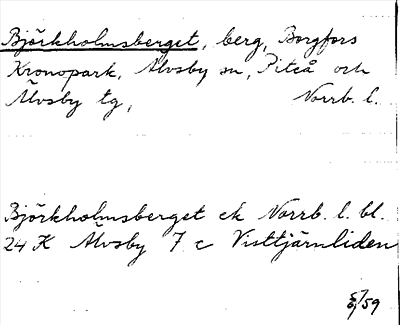 Björkholmsberget, berg, Borgfors
Kronopark, Älvsby sn, Piteå och
Älvsby tg, Norrb. l.
Björkholmsberget ek Norrb. l. bl.
24 K Älvsby 7 c Visttjärnliden
/59